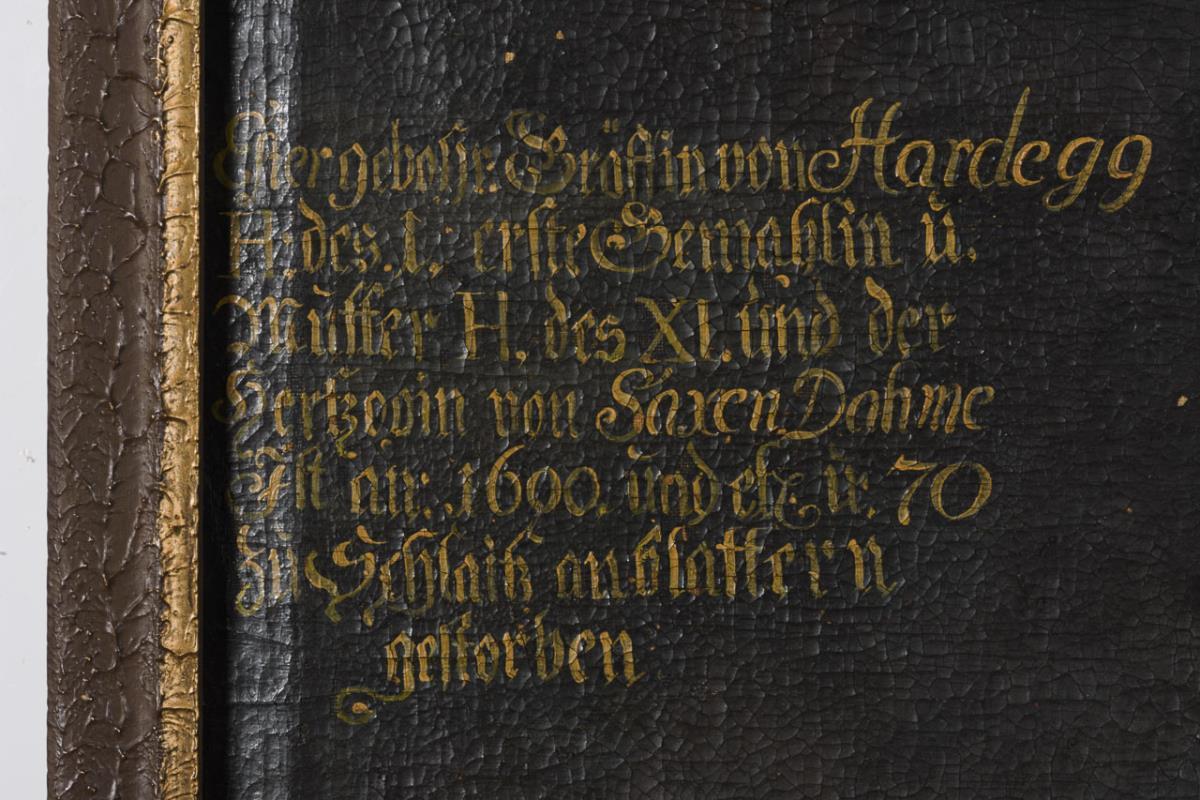 Ester gebohr. Gräffin von Hardegg
H. des. I. erste Gemahlin ŭ.
Mŭtter H. des XI. ŭnd der
Hertzogin von Saxen Dahme
Ist an: 1600. ŭnd etz. ŭ. 70
zŭ Schlaitz an blattern
gestorben